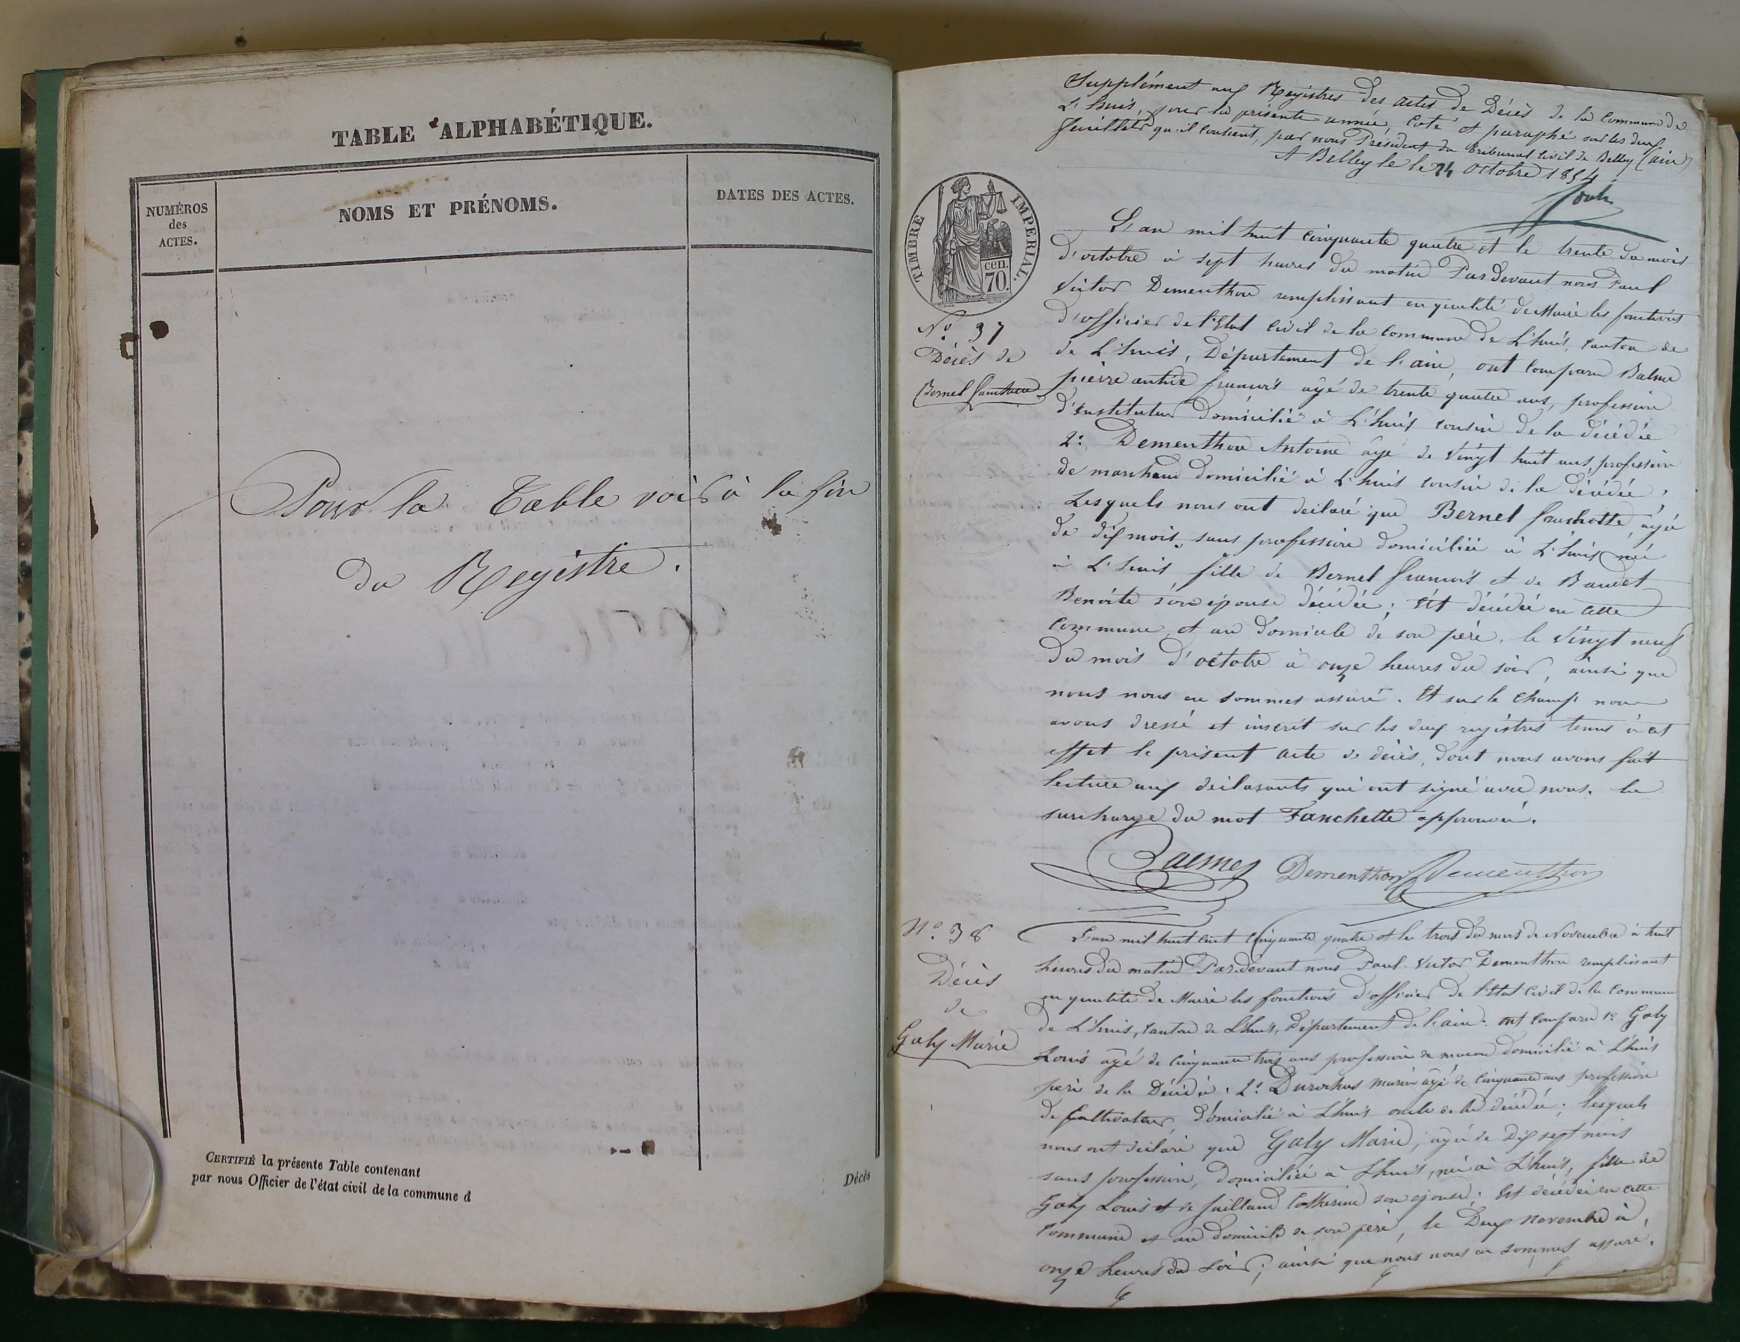 TABLE ALPHABÉTIQUE.
NUMÉROS
des
ACTES.
NOMS ET PRÉNOMS.
DATES DES ACTES.
Pour la Table voir à la fin
du Registre.
CERTIFIÉ la présente Table contenant
par nous Officier de l'état civil de la commune d
Décès
Supplément aux Registres des actes de Décès de la Commune de
L'huis, pour la présente année, coté et paraphé sur les deux
feuillets qu'il contient, par nous Président du Tribunal Civil de Belley (ain)
A Belley le le 24 octobre 1854
TIMBRE IMPERIAL.
cen.
70.
No 37
Décès de
Bernel fanchette
L'an mil huit cinquante quatre et le trente du mois
d'octobre à sept heures du matin Pardevant nous Paul
Victor Dementhon remplissant en qualité de Maire les fonctions
d'officier de l'Etat civil de la commune de L'huis, canton de
de L'huis, Département de l'ain, ont comparu Balme
pierre anthie françois âgé de trente quatre ans, profession
d'instituteur domicilié à L'huis cousin de la décédée
2° Dementhon Antoine âgé de vingt huit ans, profession
de marchand domicilié à L'huis cousin de la décédée,
Lesquels nous ont déclaré que Bernel fanchette, agée
de dix mois, sans profession domiciliée à L'huis née
à L'huis fille de Bernel françois et de Baudet
Benoite son épouse décédée; Est décédée en cette
commune et au domicile de son père, le vingt neuf
du mois d'octobre à onze heures du soir, ainsi que
nous nous en sommes assuré. Et sur le champ nous
avons dressé et inscrit sur les deux registres tenus à cet
effet le présent acte de décès, dont nous avons fait
lecture aux déclarants qui ont signé avec nous. la
surcharge du mot Fanchette approuvée.
Dementhon Dementhon
No. 38
Décès
de
Galy Marie
L'an mil huit cent cinquante quatre et le trois du mois de Novembre à huit
heures du matin Pardevant nous Paul Victor Dementhon remplissant
en qualité de Maire les fonctions d'officier de l'Etat civil de la commune
de L'huis, canton de L'huis, Département de l'ain. ont comparu 1° Galy
Louis âgé de cinquante trois ans profession de maçon domicilié à L'huis
père de la Décédée. 2° marin âgé de cinquante ans profession
de Cultivateur, domicilié à L'huis oncle de la décédée; lesquels
nous ont déclaré que Galy Marie, agée de dix sept mois
sans profession, domiciliée à L'huis, née à L'huis, fille de
Galy Louis et de Catherine son épouse. Est décédée en cette
Commune et au domicile de son père, le Deux novembre à
onze heures du soir; ainsi que nous nous en sommes assuré.